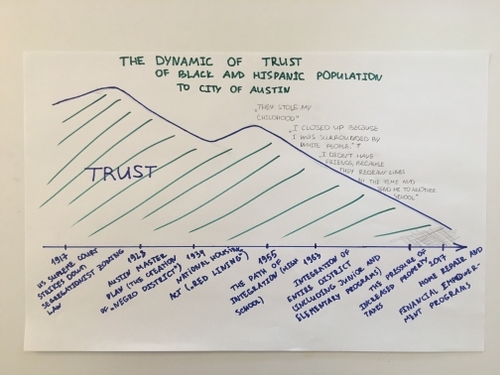 THE DYNAMIC OF TRUST
OF BLACK AND HISPANIC POPULATION
TO CITY OF AUSTIN
"THEY STOLE MY
CHILDHOOD"
"I CLOSED UP BECAUSE
I WAS SURROUNDED BY
WHITE PEOPLE."
"I DIDN'T HAVE
FRIENDS, BECAUSE
THEY REDRAW LINES
ALL THE TIME AND
SEND ME TO ANOTHER
SCHOOL"
TRUST
1917
US SUPREME COURT
STRIKES DOWN
SEGREGATIONIST ZONING
LAW
1928
AUSTIN MASTER
PLAN (THE CREATION
OF "NEGRO DISTRICT")
1934
NATIONAL HOUSING
ACT ("RED LINING")
1955
THE PATH OF
INTEGRATION (HIGH
SCHOOL)
1963
INTEGRATION OF
ENTIRE DISTRICT
(INCLUDING JUNIOR AND
ELEMENTARY PROGRAMS)
THE PRESSURE OF
INCREASED PROPERTY
TAXES
2017
HOME REPAIR AND
FINANCIAL EMPOWER-
MENT PROGRAMS